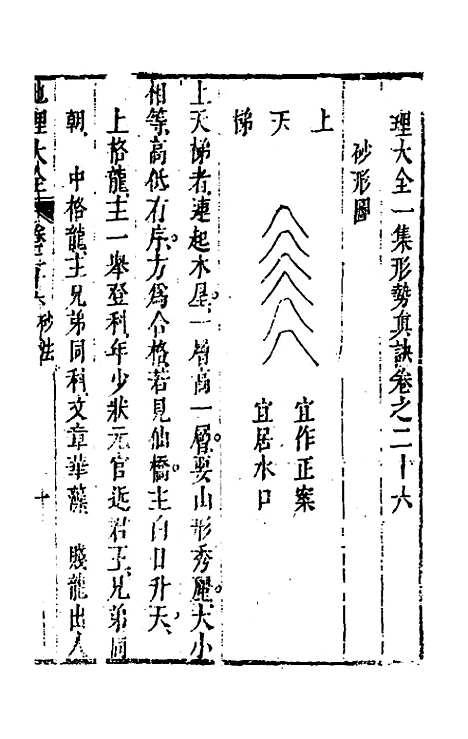 理大全一集形勢眞訣卷之二十六
砂形圖
上天梯
宜作正案
宜居水口
上天梯者連起木星一層高一層要山形秀麗大小
相等高低有序方爲合格若見仙橋主白日升天
上格龍主一舉登科年少狀元官近君王兄弟同
朝 中格龍主兄弟同科文章華藻 賤龍出人
地理大全 卷二十六 砂法 十